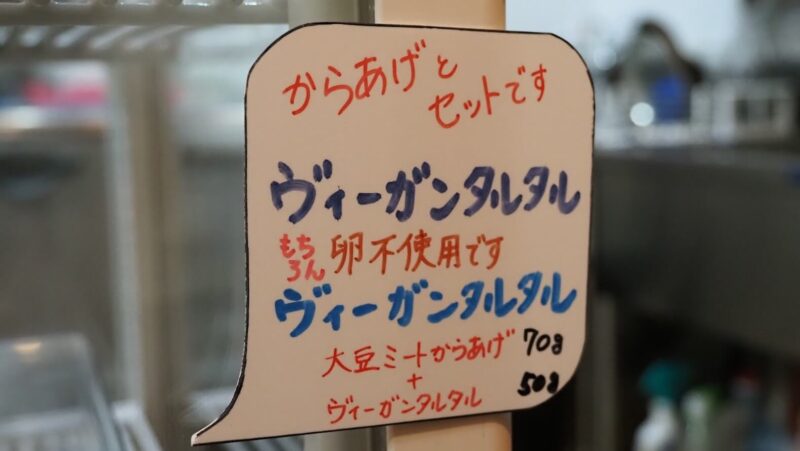 からあげと
セットです
ヴィーガンタルタル
もちろん 卵不使用です
ヴィーガンタルタル
大豆ミートからあげ 70g
+ 50g
ヴィーガンタルタル